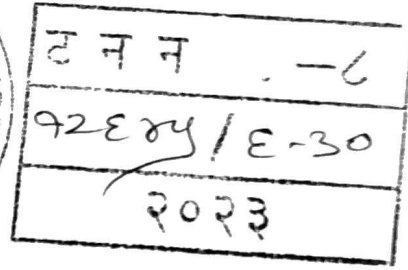 ट न न . -८
१२६४५/६-३०
२०२३